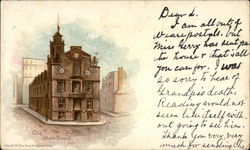 Old
State House.
Dear d.
I am all out of
souv. postals. but
Miss Gerry has sent pa
to house & that's all
you care for. I was
so sorry to hear of
Grandpa's death.
Reading would not
seem like itself with-
out going to see him.
Thank you very very
much for sending the